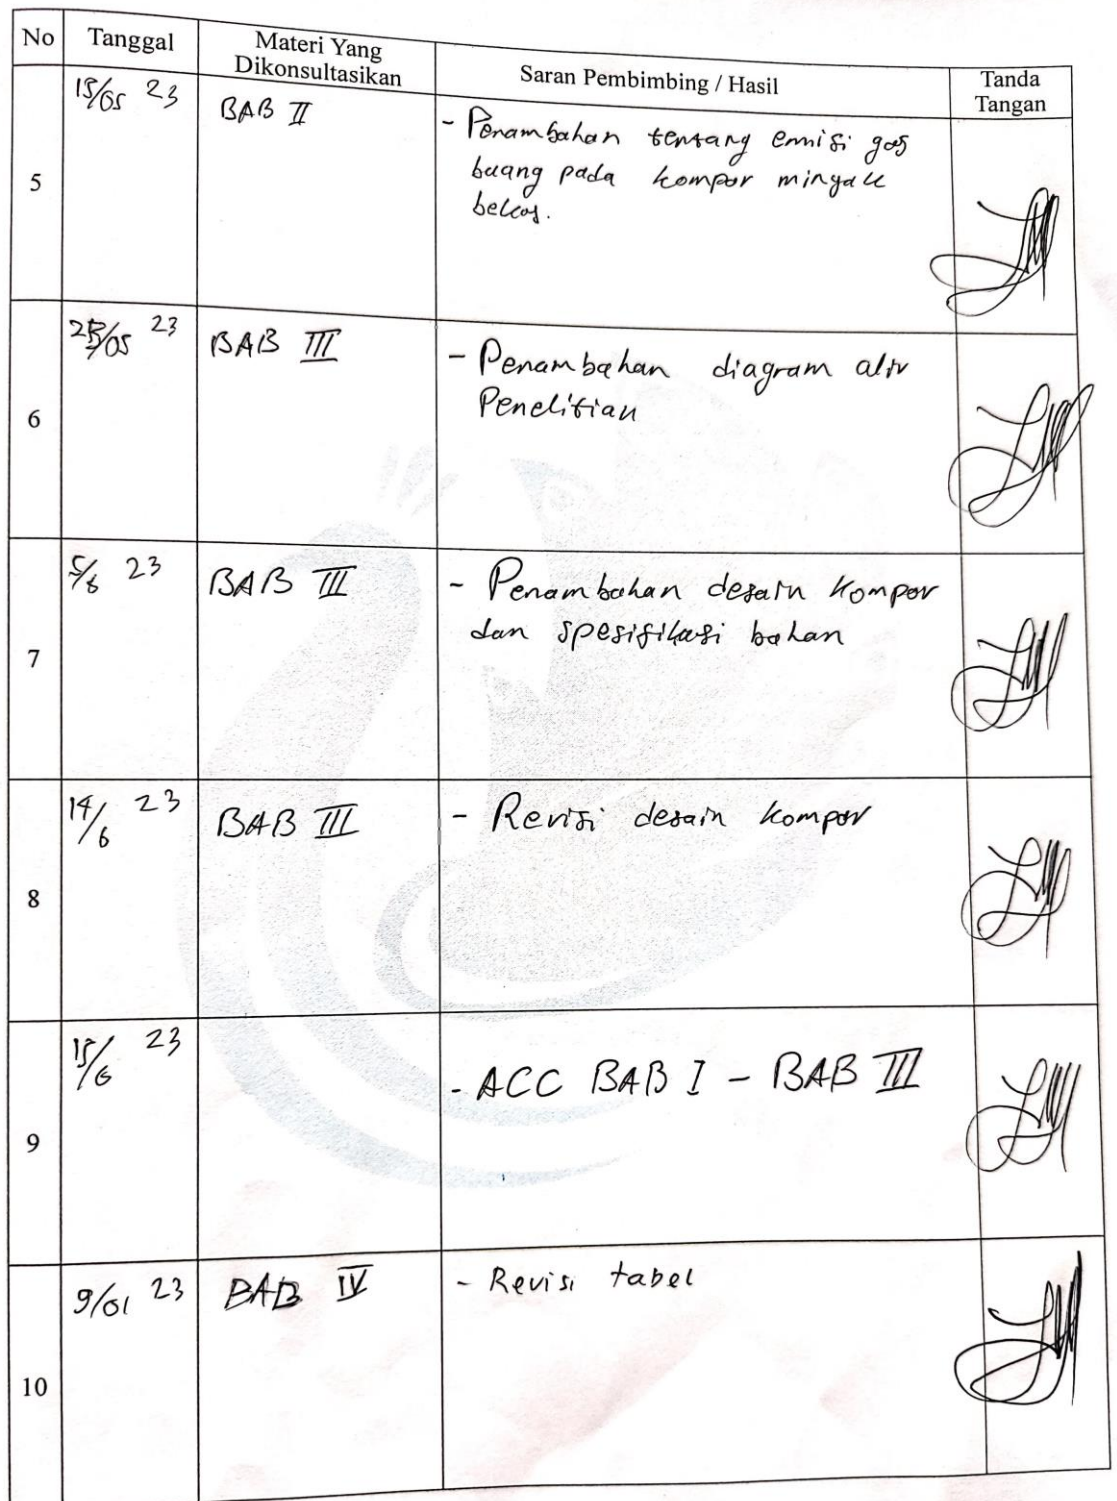 No Tanggal Materi Yang Dikonsultasikan Saran Pembimbing / Hasil Tanda Tangan
5 15/05 23 BAB II - Penambahan tentang emisi gas
buang pada kompor minyak
bekas.
6 /05 23 BAB III - Penambahan diagram alir
Penelitian
7 5/6 23 BAB III - Penambahan desain kompor
dan spesifikasi bahan
8 14/6 23 BAB III - Revisi desain kompor
9 15/6 23 - ACC BAB I - BAB III
10 9/01 23 BAB IV - Revisi tabel